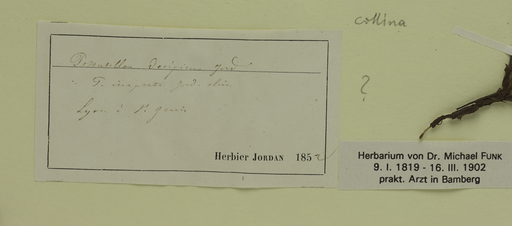 collina
Potentilla decipiens Jord
T. jord. olim
Lyon
?
Herbier JORDAN 185
Herbarium von Dr. Michael FUNK
9. I. 1819 - 16. III. 1902
prakt. Arzt in Bamberg